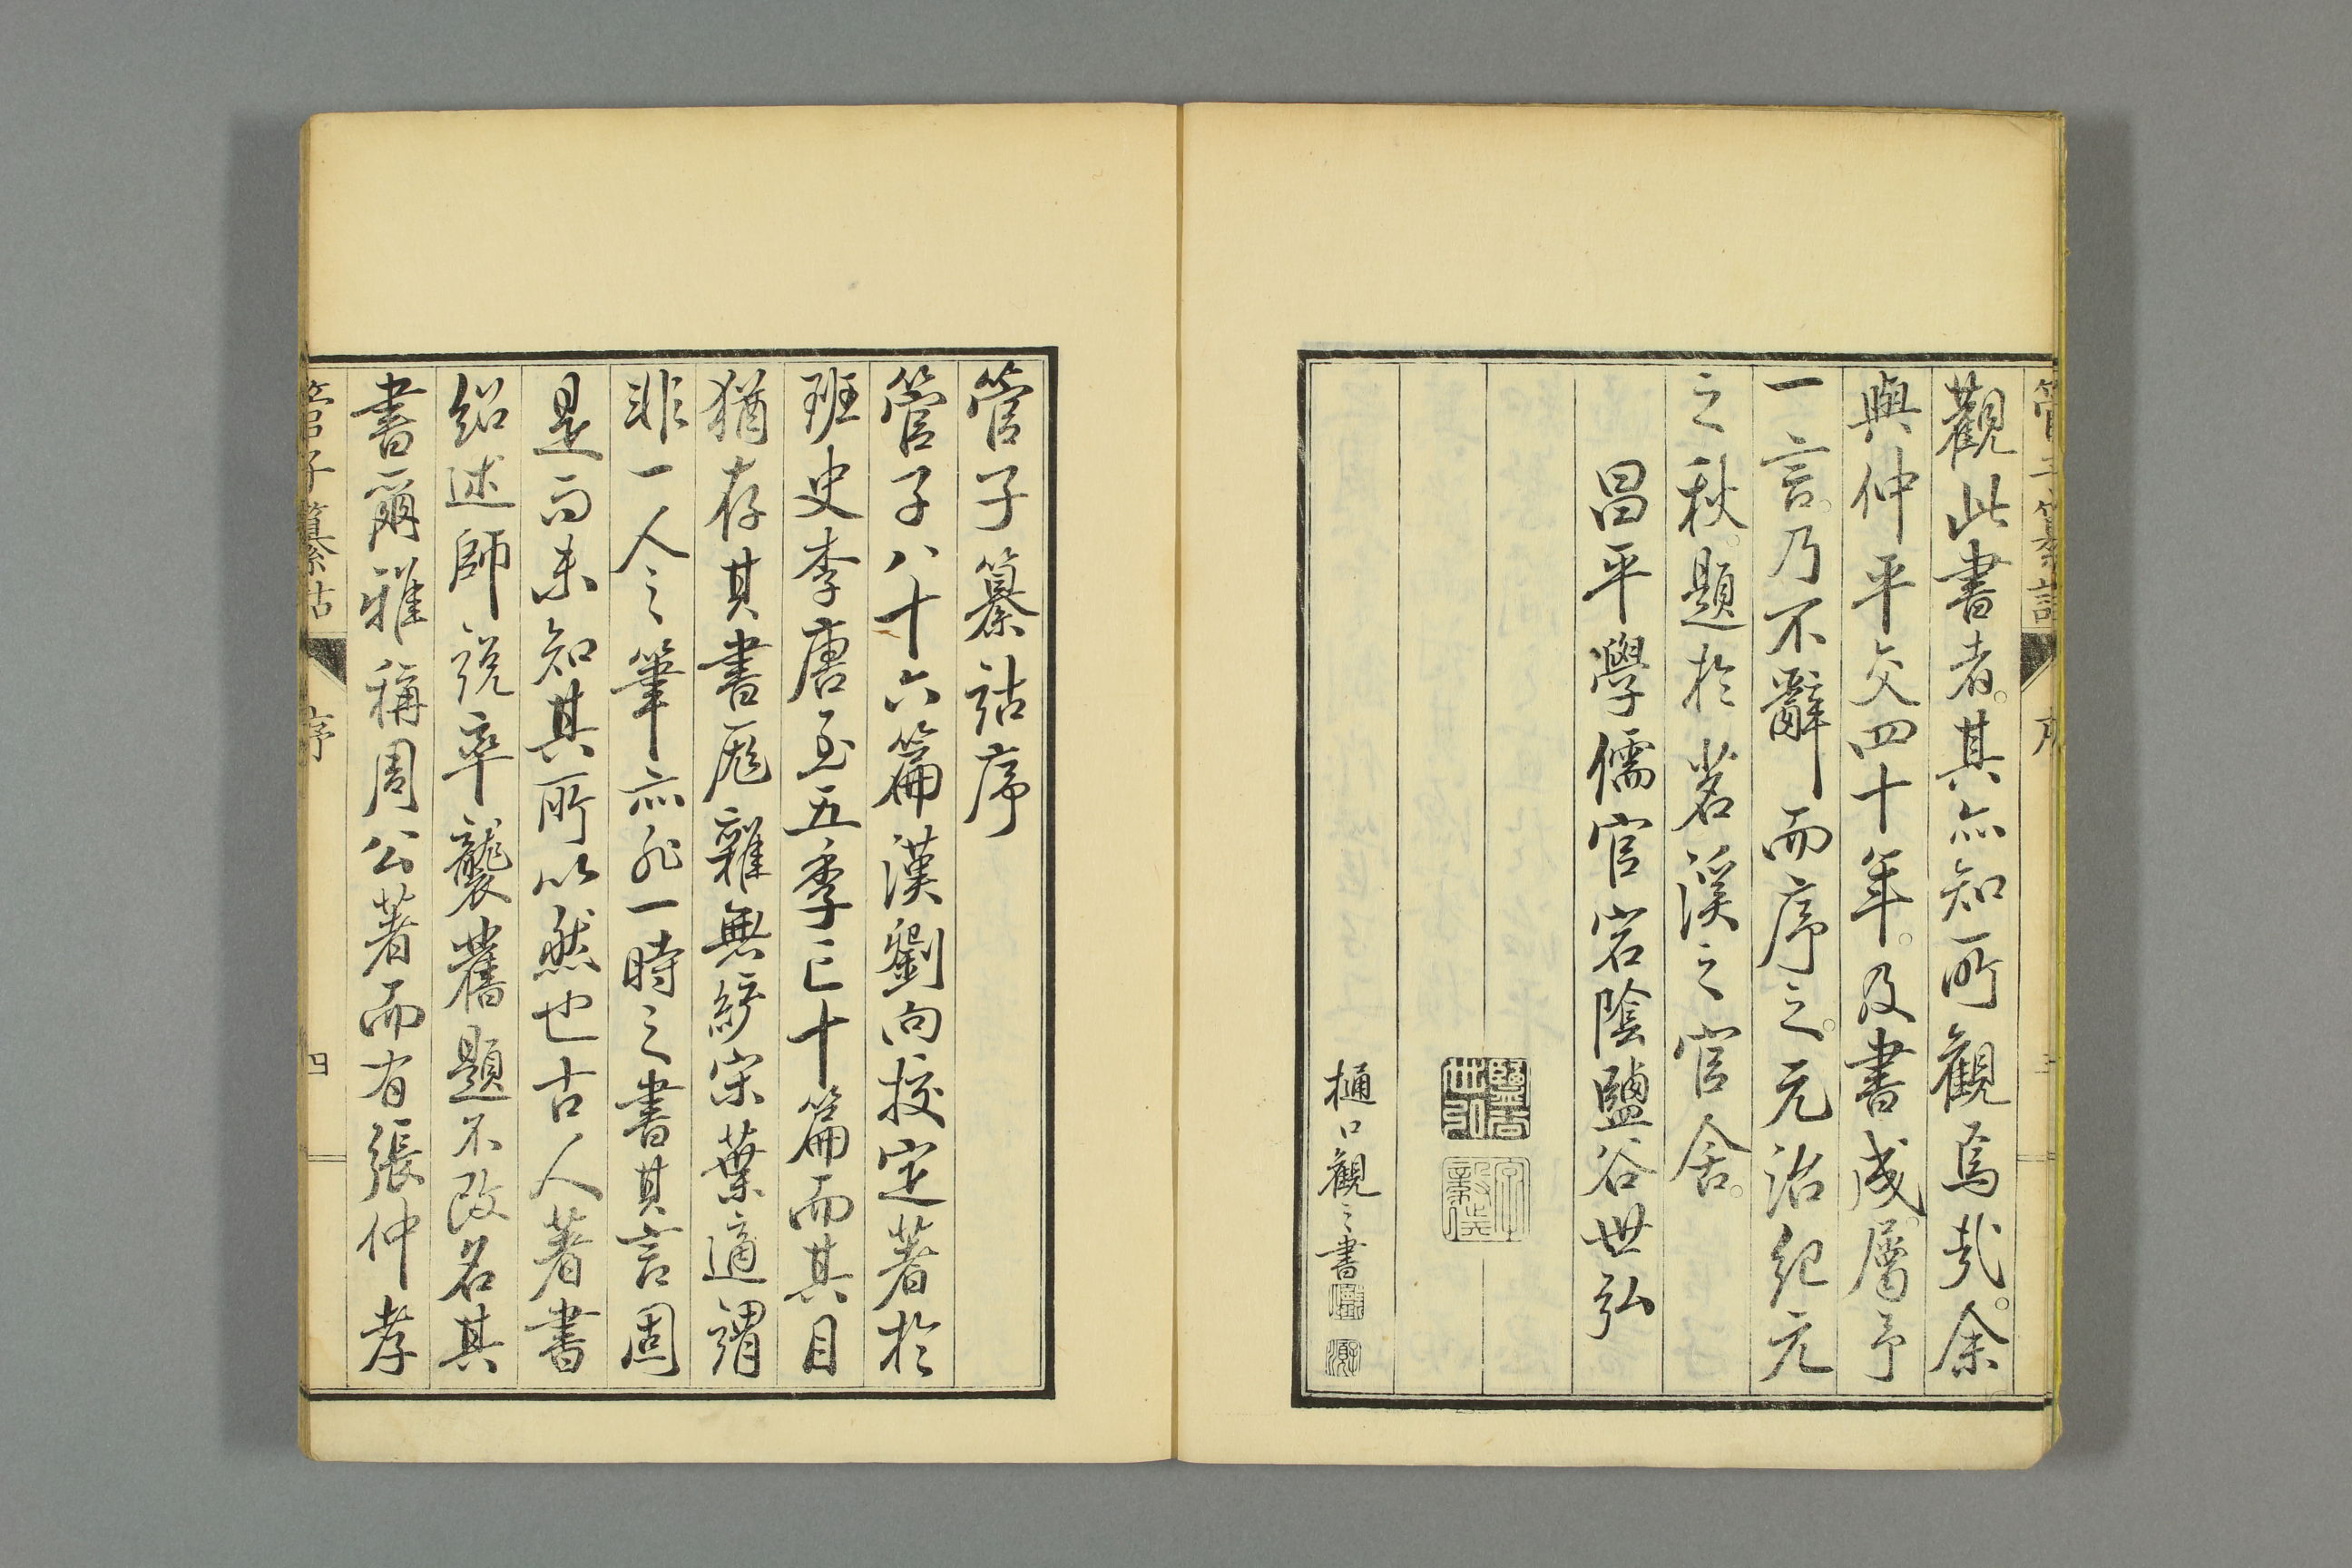 觀此書者。其亦知所觀焉哉。余
與仲平交四十年。及書成。屬予
一言。乃不辭而序之。元治紀元
之秋。題於茗溪之官舍。
昌平學儒官宕陰鹽谷世弘
樋口觀之書
管子纂詁序
管子八十六篇漢劉向校定著於
班史李唐至五季亡十篇而其目
猶存其書厖雜無緕宋葉適謂
非一人之筆亦非一時之書其言固
是而未知其所以然也古人著書
紹述師說率襲舊題不改名其
書爾雅稱周公著而有張仲孝
管子纂詁 序 四